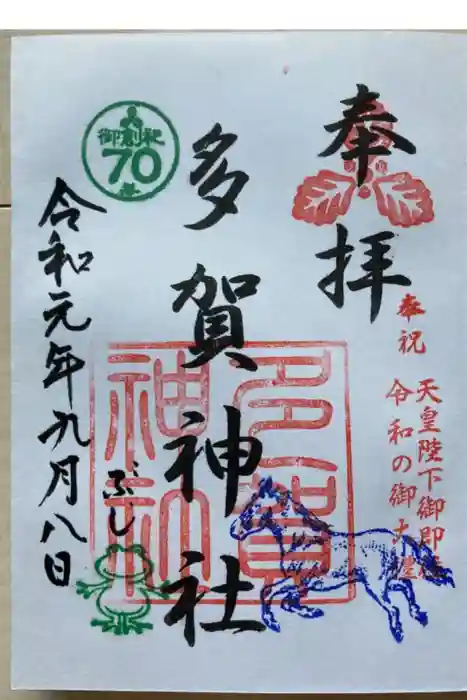 奉拝
奉祝
天皇陛下御即位
令和の御大禮
多賀神社
多賀
神社
御創祀
70
年
ぶじ
令和元年九月八日